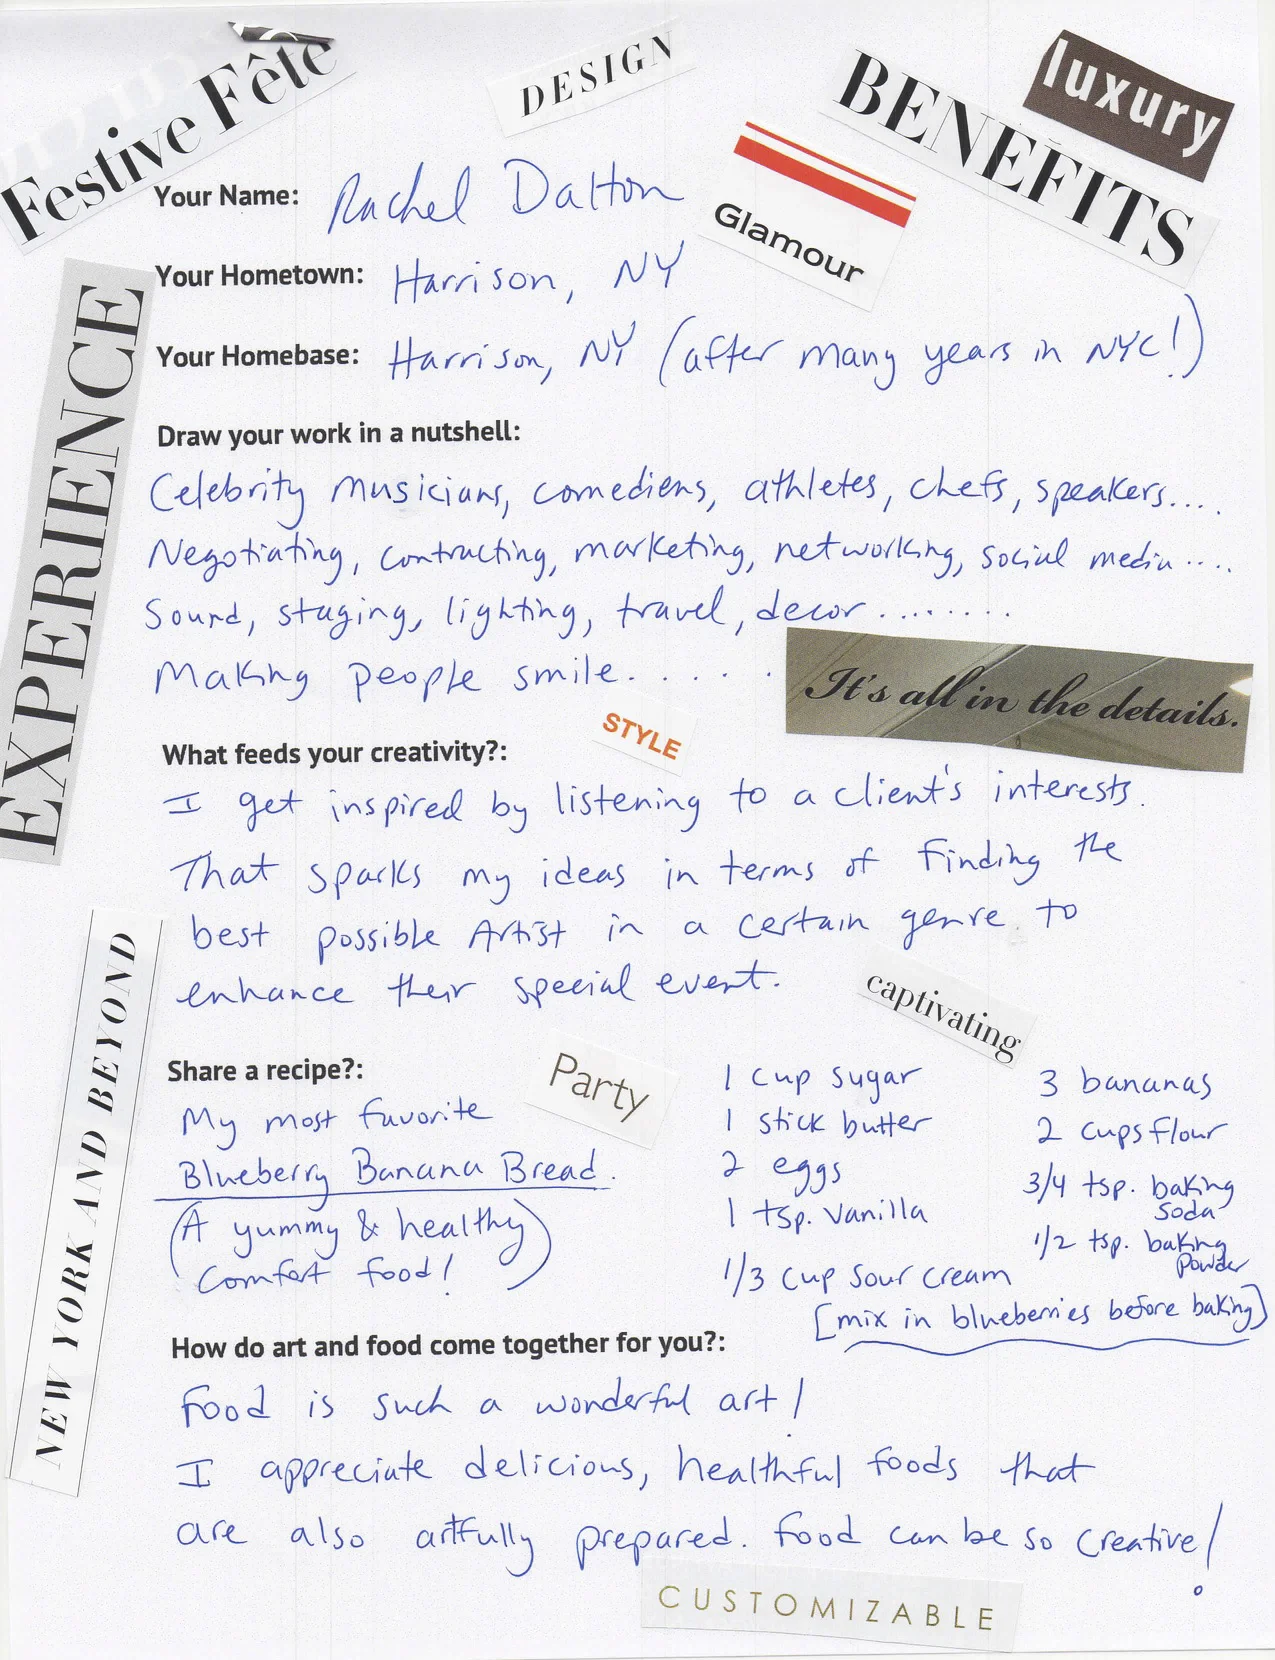 Festive Fête
DESIGN
BENEFITS
luxury
Glamour
Your Name: Rachel Dalton
Your Hometown: Harrison, NY
Your Homebase: Harrison, NY (after many years in NYC!)
EXPERIENCE
Draw your work in a nutshell:
Celebrity musicians, comediens, athletes, chefs, speakers....
Negotiating, contracting, marketing, networking, social media....
Sound, staging, lighting, travel, decor........
Making people smile......
It's all in the details.
STYLE
What feeds your creativity?:
I get inspired by listening to a client's interests.
That sparks my ideas in terms of finding the
best possible Artist in a certain genre to
enhance their special event.
captivating
NEW YORK AND BEYOND
Share a recipe?:
Party
My most favorite
Blueberry Banana Bread.
(A yummy & healthy
comfort food!)
1 cup sugar
1 stick butter
2 eggs
1 tsp. vanilla
1/3 cup sour cream
3 bananas
2 cups flour
3/4 tsp. baking
soda
1/2 tsp. baking
powder
[mix in blueberries before baking]
How do art and food come together for you?:
Food is such a wonderful art!
I appreciate delicious, healthful foods that
are also artfully prepared. Food can be so creative!
CUSTOMIZABLE